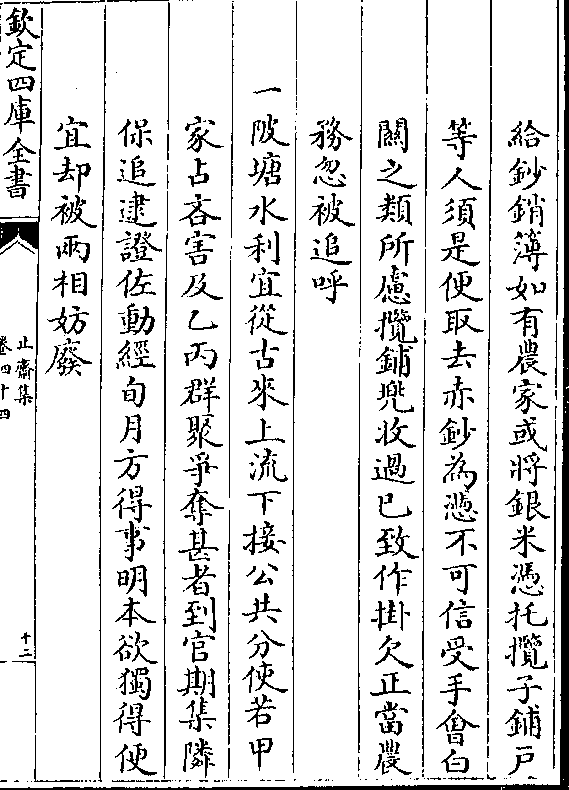 給鈔銷簿如有農家或將銀米憑托攬子鋪戸
等人須是便取去赤鈔為憑不可信受手㑹白
關之類所慮攬鋪兠收過已致作掛欠正當農
務忽被追呼
一陂塘水利宜從古來上流下接公共分使若甲
家占吝害及乙丙群聚爭奪甚者到官期集隣
保追逮證佐動經旬月方得事明本欲獨得便
宜却被兩相妨廢
欽定四庫全書
止齋集
卷四十四
十二